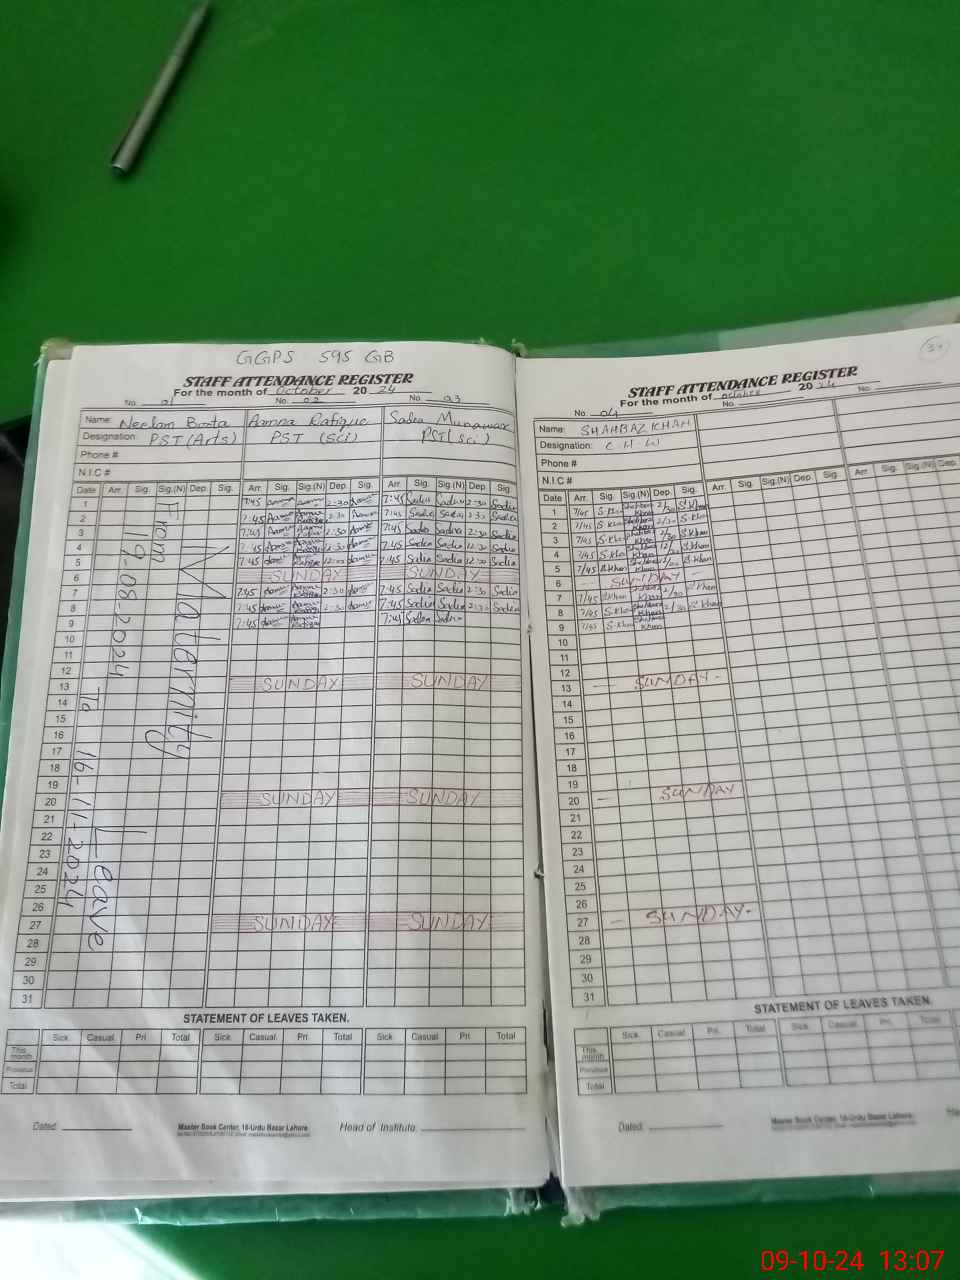 GGPS 595 GB
STAFF ATTENDANCE REGISTER
For the month of October 20 24
No. 01 No. 02 No. 03
Name: Neelam Busta Aamna Rafique Sadia Munawar
Designation: PST (Arts) PST (Sci) PST (Sci)
Phone #
N.I.C #
Date Arr. Sig. Sig.(N) Dep. Sig. Arr. Sig. Sig.(N) Dep. Sig. Arr. Sig. Sig.(N) Dep Sig.
1 7:45 2:30 7:45 Sadia Sadia 2:30 Sadia
2 7:45 2:30 7:45 Sadia Sadia 2:30 Sadia
3 7:45 2:30 7:45 Sadia Sadia 2:30 Sadia
4 7:45 12:30 7:45 Sadia Sadia 12:30 Sadia
5 7:45 7:45 Sadia Sadia 2:30 Sadia
6 SUNDAY SUNDAY
7 7:45 2:30 7:45 Sadia Sadia 2:30 Sadia
8 7:45 2:30 7:45 Sadia Sadia 2:30 Sadia
9 7:45 7:45 Sadia Sadia
10
11
12
13 SUNDAY SUNDAY
14
15
16
17
18
19
20 SUNDAY SUNDAY
21
22
23
24
25
26
27 SUNDAY SUNDAY
28
29
30
31
Maternity Leave
From 19.08.2024 To 16-11-2024
STATEMENT OF LEAVES TAKEN.
Sick. Casual. Pri. Total Sick. Casual. Pri. Total Sick. Casual. Pri. Total
This month
Previous
Total
Dated Master Book Center, 16-Urdu Bazar Lahore. Head of Institute:
STAFF ATTENDANCE REGISTER
For the month of October 20 24
No. 04 No. No.
Name: SHAHBAZ KHAN
Designation: C H W
Phone #
N.I.C #
Date Arr. Sig. Sig.(N) Dep. Sig. Arr. Sig. Sig.(N) Dep. Sig. Arr. Sig. Sig.(N) Dep.
1 7/45 S.Khan Shahbaz Khan 2/30 S.Khan
2 7/45 S.Khan Shahbaz Khan 2/30 S.Khan
3 7/45 S.Khan Shahbaz Khan 2/30 S.Khan
4 7/45 S.Khan Shahbaz Khan 12/30 S.Khan
5 7/45 S.Khan Shahbaz Khan S.Khan
6 SUNDAY
7 7/45 S.Khan Shahbaz Khan 2/30 S.Khan
8 7/45 S.Khan Shahbaz Khan 2/30 S.Khan
9 7/45 S.Khan Shahbaz Khan
10
11
12
13 — SUNDAY -
14
15
16
17
18
19
20 — SUNDAY
21
22
23
24
25
26
27 — SUNDAY-
28
29
30
31
STATEMENT OF LEAVES TAKEN.
Sick. Casual. Pri. Total Sick. Casual. Pri. Total Sick.
This month
Previous
Total
Dated Master Book Center, 16-Urdu Bazar Lahore.
09-10-24 13:07